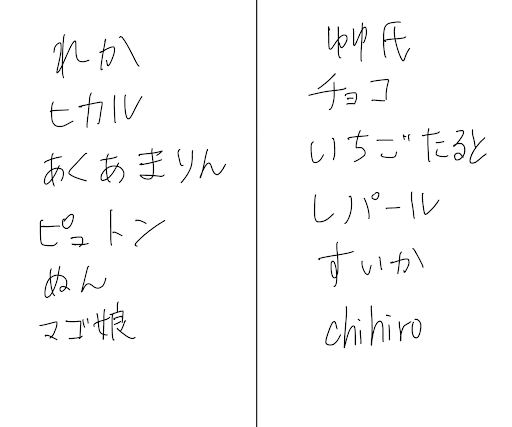 れか
ヒカル
あくあまりん
ピュトン
ぬん
マゴ娘
ゆゆ氏
チョコ
いちごたると
レパール
すいか
chihiro